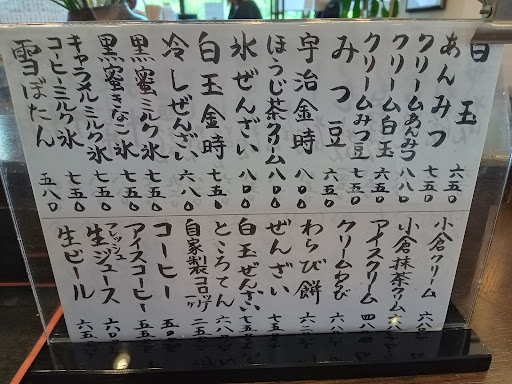 白玉
あんみつ 六五〇
クリームあんみつ 七五〇
クリーム白玉 八八〇
クリームみつ豆 七五〇
みつ豆 六五〇
宇治金時 八〇〇
ほうじ茶クリーム 八〇〇
氷ぜんざい 八〇〇
白玉金時 七五〇
冷しぜんざい 六八〇
黒蜜ミルク氷 七五〇
黒蜜きなこ氷 七五〇
キャラメルミルク氷 七五〇
コーヒーミルク氷 七五〇
雪ぼたん 五八〇
小倉クリーム
小倉抹茶クリーム
アイスクリーム
クリームわらび
わらび餅
ぜんざい
白玉ぜんざい
ところてん
自家製コロッケ
コーヒー
アイスコーヒー
フレッシュ生ジュース
生ビール